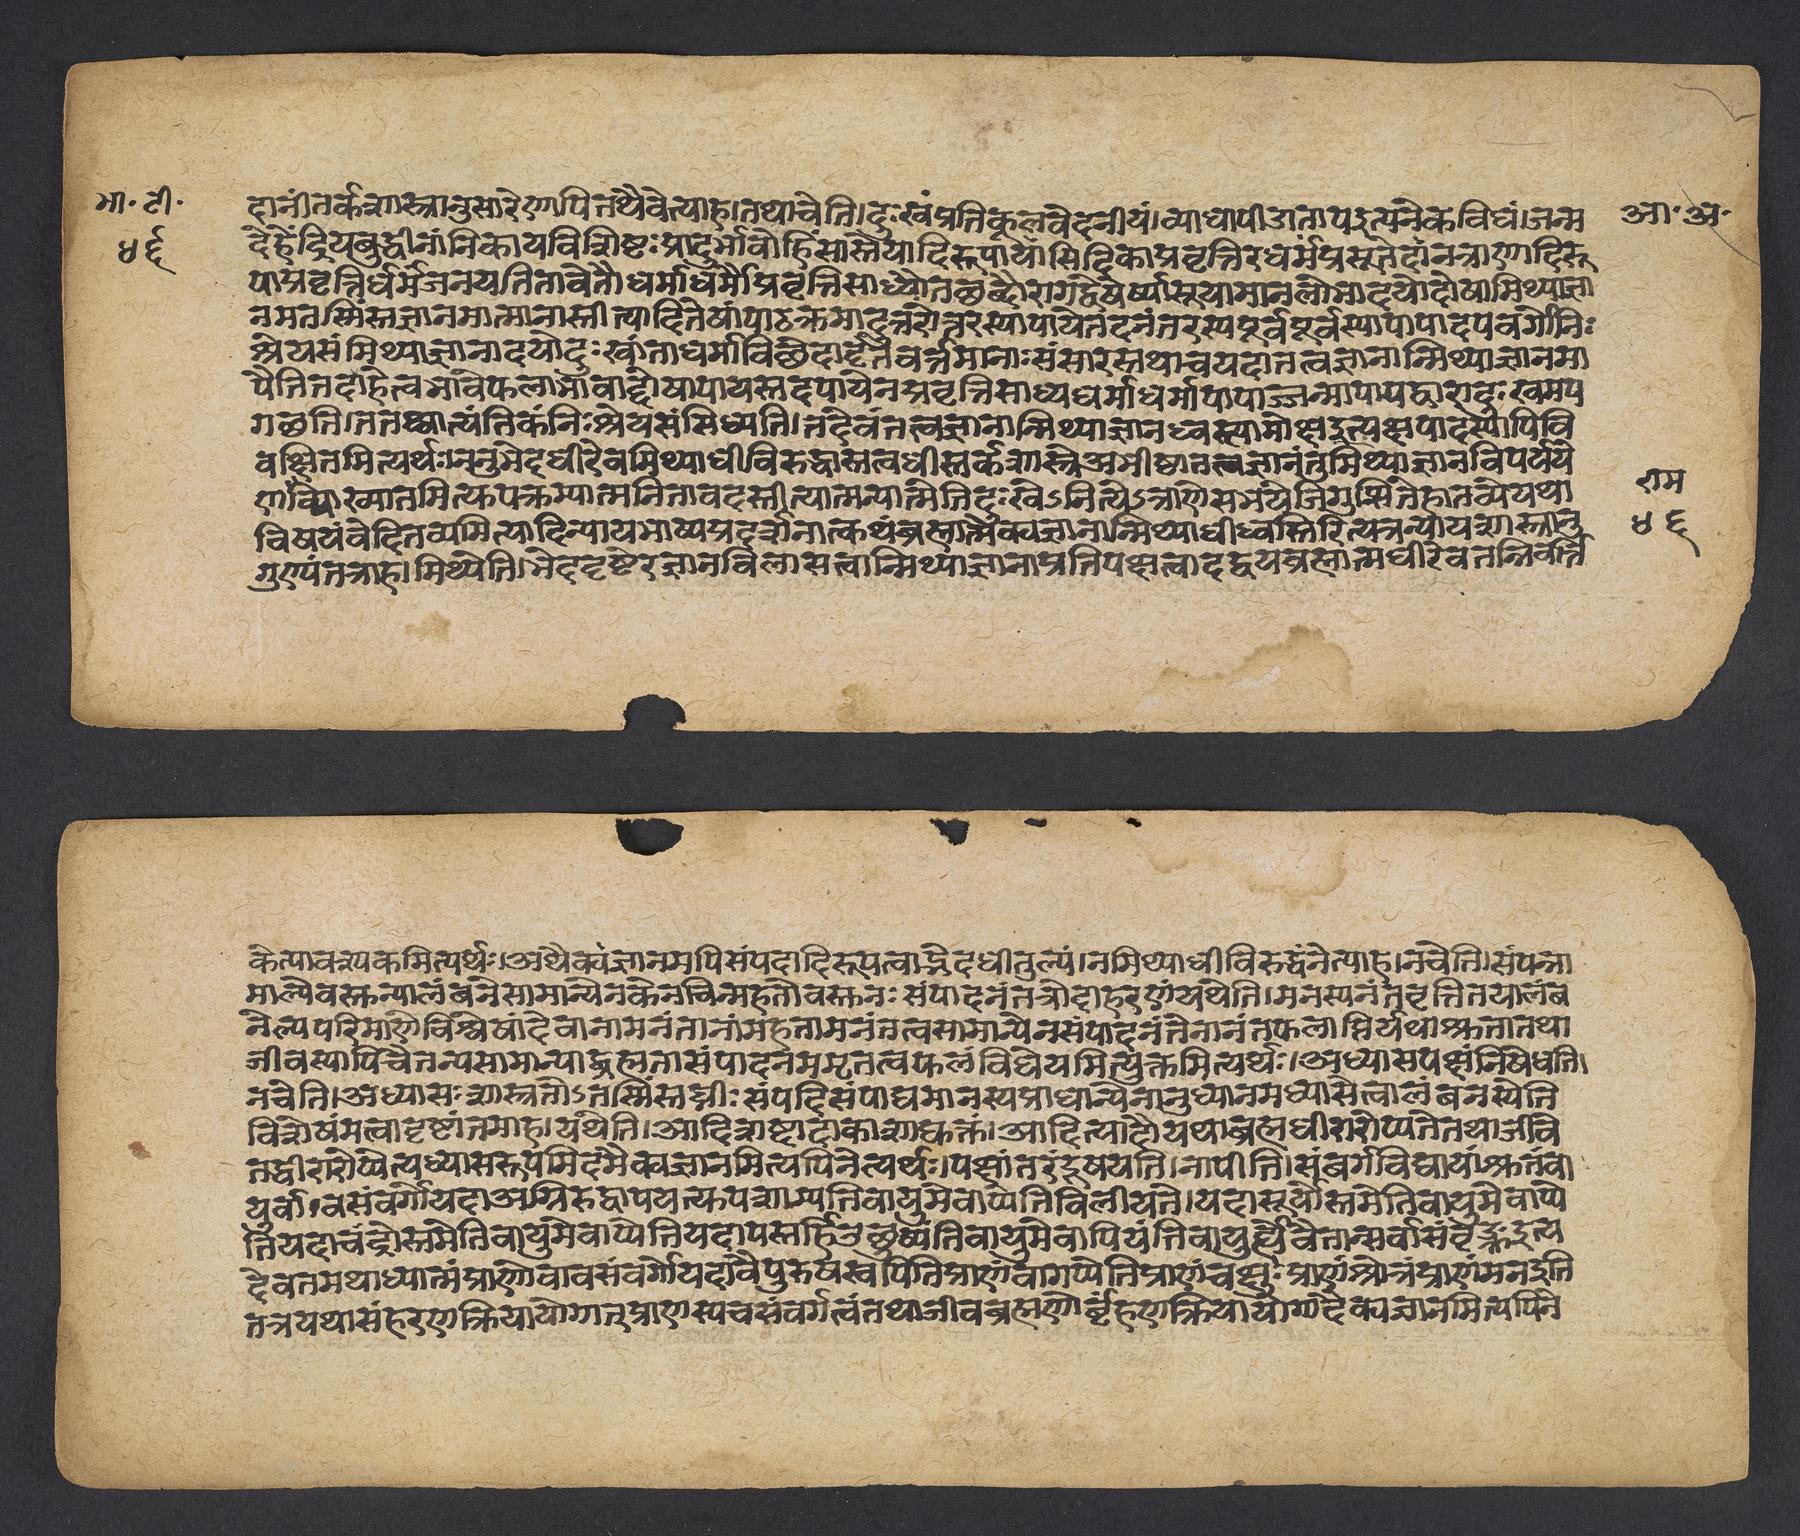 भा॰ टी॰
४६
आ॰ अ॰
दानींतर्कशास्त्रानुसारेणापितथैवेत्याह।तथाचेति।दुःखंप्रतिकूलवेदनीयं।व्याधापीडातापइत्यनेकविधं।जन्म
देहेंद्रियबुद्धीनांनिकायविशिष्टःप्रादुर्भावोहिंसास्तेयादिरूपायासिद्धिकाप्रवृत्तिरधर्मप्रसूतेदानत्राणादिरू
पाप्रवृत्तिर्धर्मंजनयतितावेतौधर्माधर्मौप्रवृत्तिसाध्यौतछब्दौरागद्वेषेर्ष्यासूयामानलोभादयोदोषामिथ्याज्ञा
नमतस्मिंस्तज्ञानमात्मानास्तीत्यादितेषांपाठक्रमादुत्तरोत्तरस्यापायेतदनंतरस्यपूर्वपूर्वस्यापापादपवर्गोनिः
श्रेयसंमिथ्याज्ञानादयोदुःखांताधर्माविछेदादृतेवर्त्तमानाःसंसारस्तथाचयदातत्वज्ञानान्मिथ्याज्ञानमा
पैतितदाहेत्वभावेफलाभावाद्दोषापायस्तदपायेनप्रवृत्तिसाध्यधर्माधर्मापापाज्जन्मापायद्वारादुःखमप
गछति।ततश्चात्यंतिकंनिःश्रेयसंसिध्यति।तदेवंतत्वज्ञानान्मिथ्याज्ञानध्वस्त्यामोक्षइत्यक्षपादस्यापिवि
वक्षितमित्यर्थः।ननुभेदधीरेवमिथ्याधीविरुद्धास्तत्वधीस्तर्कशास्त्रेअभीष्टातत्वज्ञानंतुमिथ्याज्ञानविपर्यये
णव्याख्यातमित्युपक्रम्यात्मनितावदस्तीत्यात्मन्यात्मेतिदुःखेऽनित्येऽत्राणेसभयेजुगुप्सितेहातव्येयथा
विषयंवेदितव्यमित्यादिन्यायभाष्यप्रदर्शनात्कथंब्रह्मात्मैक्यज्ञानान्मिथ्याधीध्वस्तिरित्यत्रन्यायशास्त्रानु
गुण्यंतत्राह।मिथ्येति।भेददृष्टेरज्ञानविलासत्वान्मिथ्याज्ञानाप्रतिपक्षत्वादद्वयब्रह्मात्मधीरेवतन्निवर्त्ति
राम
४६
केत्यावश्यकमित्यर्थः।अथैक्यज्ञानमपिसंपदादिरूपत्वाद्भेदधीतुल्यं।नमिथ्याधीविरुद्धंनेत्याह।नचेति।संपन्ना
माल्पेवस्तुन्यालंबनेसामान्येनकेनचिन्महतोवस्तुनःसंपादनंतत्रोदाहरणंयथेति।मनस्यनंतवृत्तितयालंब
नेल्पपरिमाणेविश्वेषांदेवानामनंतानांमहतामनंतत्वसामान्येनसंपादनंतेनानंतफलाप्तिर्यथाश्रुतातथा
जीवस्यापिचैतन्यसामान्याद्ब्रह्मतासंपादनममृतत्वफलंविधेयमित्युक्तमित्यर्थः।अध्यासपक्षंनिषेधति।
नचेति।अध्यासःशास्त्रतोऽतस्मिंस्तद्धीःसंपदिसंपाद्यमानस्यप्राधान्येनानुध्यानमध्यासेत्वालंबनस्येति
विशेषंमत्वादृष्टांतमाह।यथेति।आदिशब्दादाकाशाद्युक्तं।आदित्यादौयथाब्रह्मधीरारोप्यतेतथाजीवे
तद्धीरारोप्येत्यध्यासरूपमिदमैक्यज्ञानमित्यपिनेत्यर्थः।पक्षांतरंदूषयति।नापीति।संवर्गविद्यायांश्रुतंवा
युर्वावसंवर्गोयदाअग्निरुद्वापयत्युपशाम्यतिवायुमेवाप्येतिविलीयते।यदासूर्योस्तमेतिवायुमेवाप्ये
तियदाचंद्रोस्तमेतिवायुमेवाप्येतियदापस्तर्हिउछुष्यंतिवायुमेवापियंतिवायुर्ह्येवैतान्सर्वासंवृंक्तइत्य
दैवतमथाध्यात्मंप्राणोवावसंवर्गोयदावैपुरुषस्वपितिप्राणंवागप्येतिप्राणंचक्षुःप्राणंश्रोत्रंप्राणंमनइति
तत्रयथासंहरणक्रियायोगात्प्राणस्यचसंवर्गत्वंतथाजीवब्रह्मणोर्बृंहणक्रियायोगादैक्यज्ञानमित्यपिने